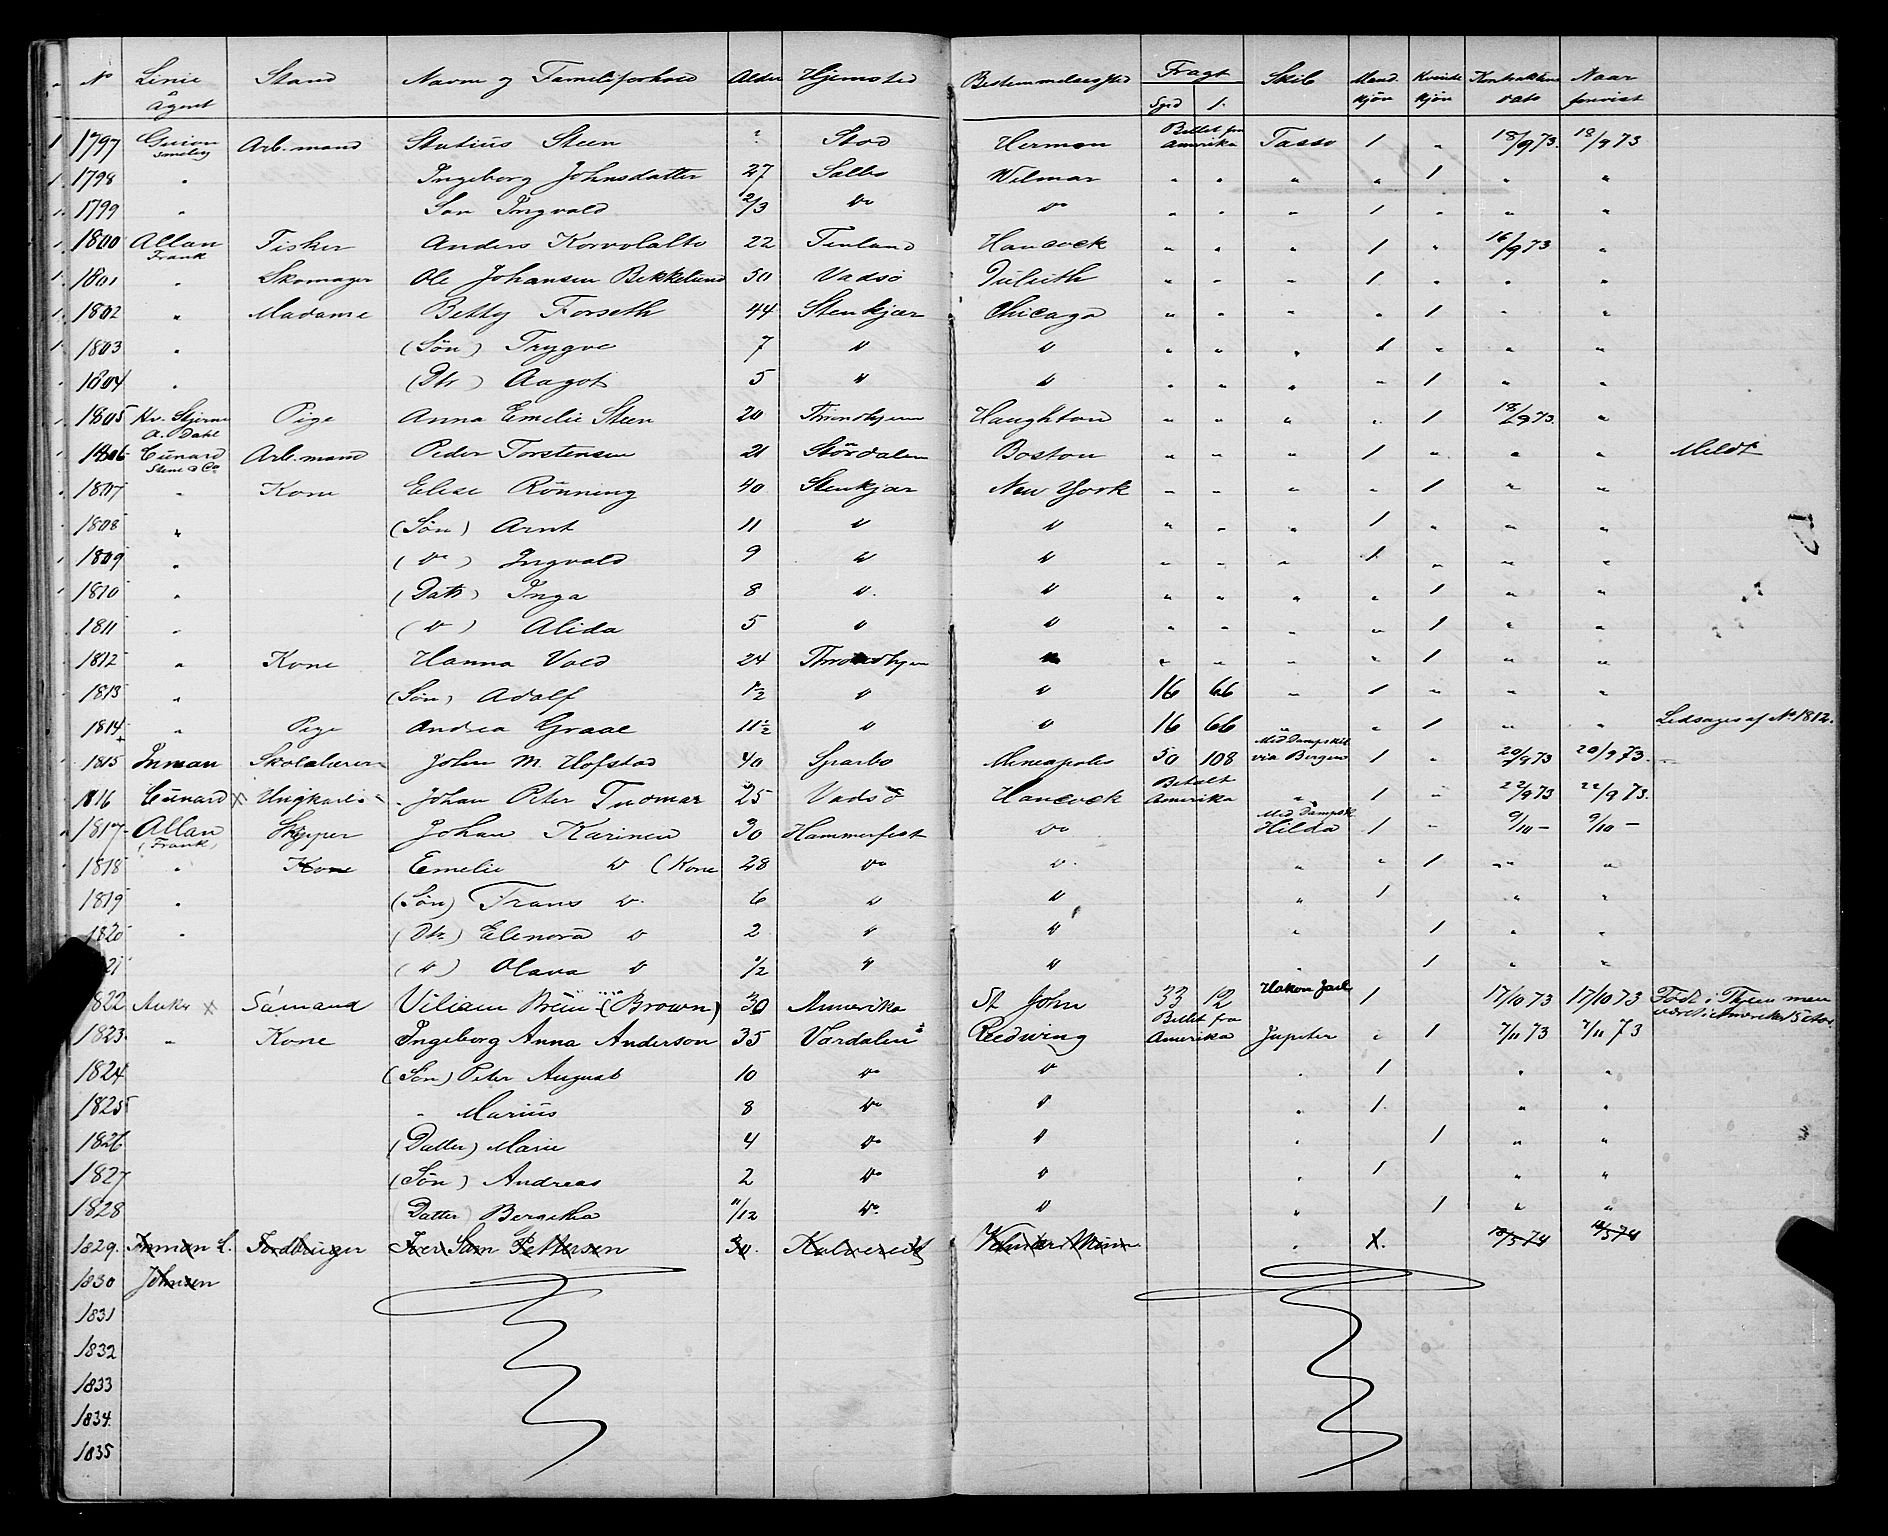 No Linie & Agent Stand Navn og Familiforhold Alder Hjemsted Bestemmelsessted Fragt Spd ß. Skib Mandkjön Kvindekjön Kontraktens dato Naar forevist
1 1797 Guion Smeby Arb. mand Statius Steen ? Stod Herman Billet fra Amerika Tasso 1 " 18/9 73. 18/9 73
1. 1798 " Ingeborg Johnsdatter 27 Salbo Wilmar " " " " 1 " "
1. 1799 " Son Ingvald 2/3 Do Do " " " 1 " " "
1800 Allan Frank Fisker Anders Korvolalto 22 Finland Hancock " " " 1 " 16/9 73 "
1801 " Skomager Ole Johansen Bekkelund 50 Vadsö Duluth " " " 1 " " "
1802 " Madame Betty Forseth 44 Stenkjær Chicago " " " " 1 " "
1803 " (Sön) Trygve 7 D D " " " 1 " " "
1804 " (Dtr) Aagot 5 " D " " " " 1 " "
1805 Hv. Stjerne A. Dahl Pige Anna Emelie Steen 20 Throndhjem Haughton " " " " 1 18/9 73 "
1806 Cunard Stene & Co Arb. mand Peder Torstensen 21 Stördalen Boston " " " 1 " " " Meldt
1807 " Kone Elise Rönning 40 Stenkjær New York " " " " 1 " "
1808 " (Sön) Arnt 11 D D " " " 1 " " "
1809 " (Do) Ingvald 9 D D " " " 1 " " "
1810 " (Datt) Inga 8 D. D " " " " 1 " "
1811 " (D) Alida 5 D D " " " " 1 " "
1812 " Kone Hanna Vold 24 Throndhjem " " " " 1 " "
1813 " (Sön) Adolf 1 1/2 D D 16 66 " 1 " " "
1814 " Pige Andrea Graae 11 1/2 D D 16 66 " " 1 " " Ledsages af No 1812.
1815 Inman Skolelærer John M. Hofstad 40 Sparbo Mineapolis 50 108 Med Dampskib via Bergen 1 " 20/9 73 20/9 73
1816 Cunard x Ungkarl Johan Peter Tuomar 25 Vadsö Hancock Betalt Amerika " 1 " 22/9 73 22/9 73.
1817 Allan (Frank) Skipper Johan Karinen 30 Hammerfest Do Med Dampsk. Hilda 1 " 9/10 - 9/10 -
1818 " Kone Emelie D (Kone 28 Do D. " " 1 " "
1819 " (Sön) Frans D. 6 D D " 1 " "
1820 " (Dtr) Elenora D 2 " D " 1 " "
21 (D) Olava D 1/2 " D " 1 " "
1822 Anker x Sömand Viliam Brun (Brown) 30 Amerika St John 33 12 Hakon Jarl 1 17/10 73 17/10 73 Född i Thjem men været i Amerika 15 Aar.
1823. " Kone Ingeborg Anna Anderson 35 Værdalen Reedwing Billet fra Amerika Jupiter " 1 7/11 73 7/11 73
1824 (Sön) Peter August 10 Do D " 1 " "
1825 " Marius 8 Do D " 1. " "
1826 (Datter) Marie 4 Do D " 1 " "
1827 (Sön) Andreas 2 Do D " 1 " "
1828 (Datter) Bergitha 11/12 Do D " 1 " "
1829. Inman L. Iver Sam Pettersen 30. " 1. 18/5 74 18/5 74
1830 Johnsen
1831
1832
1833
1834
1835